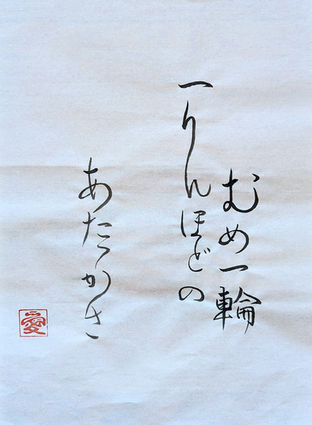 むめ一輪
一りんほどの
あたゝかさ
愛